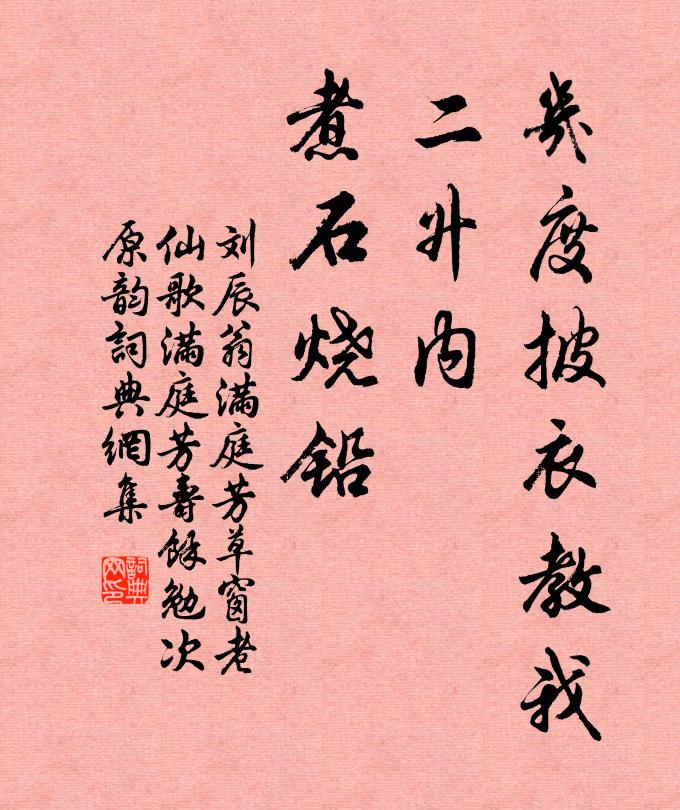 几度披衣教我
二升内
煮石烧铅
刘辰翁满庭芳草窗老
仙歌满庭芳寿馀勉次
原韵詞典網集
詞典
网印